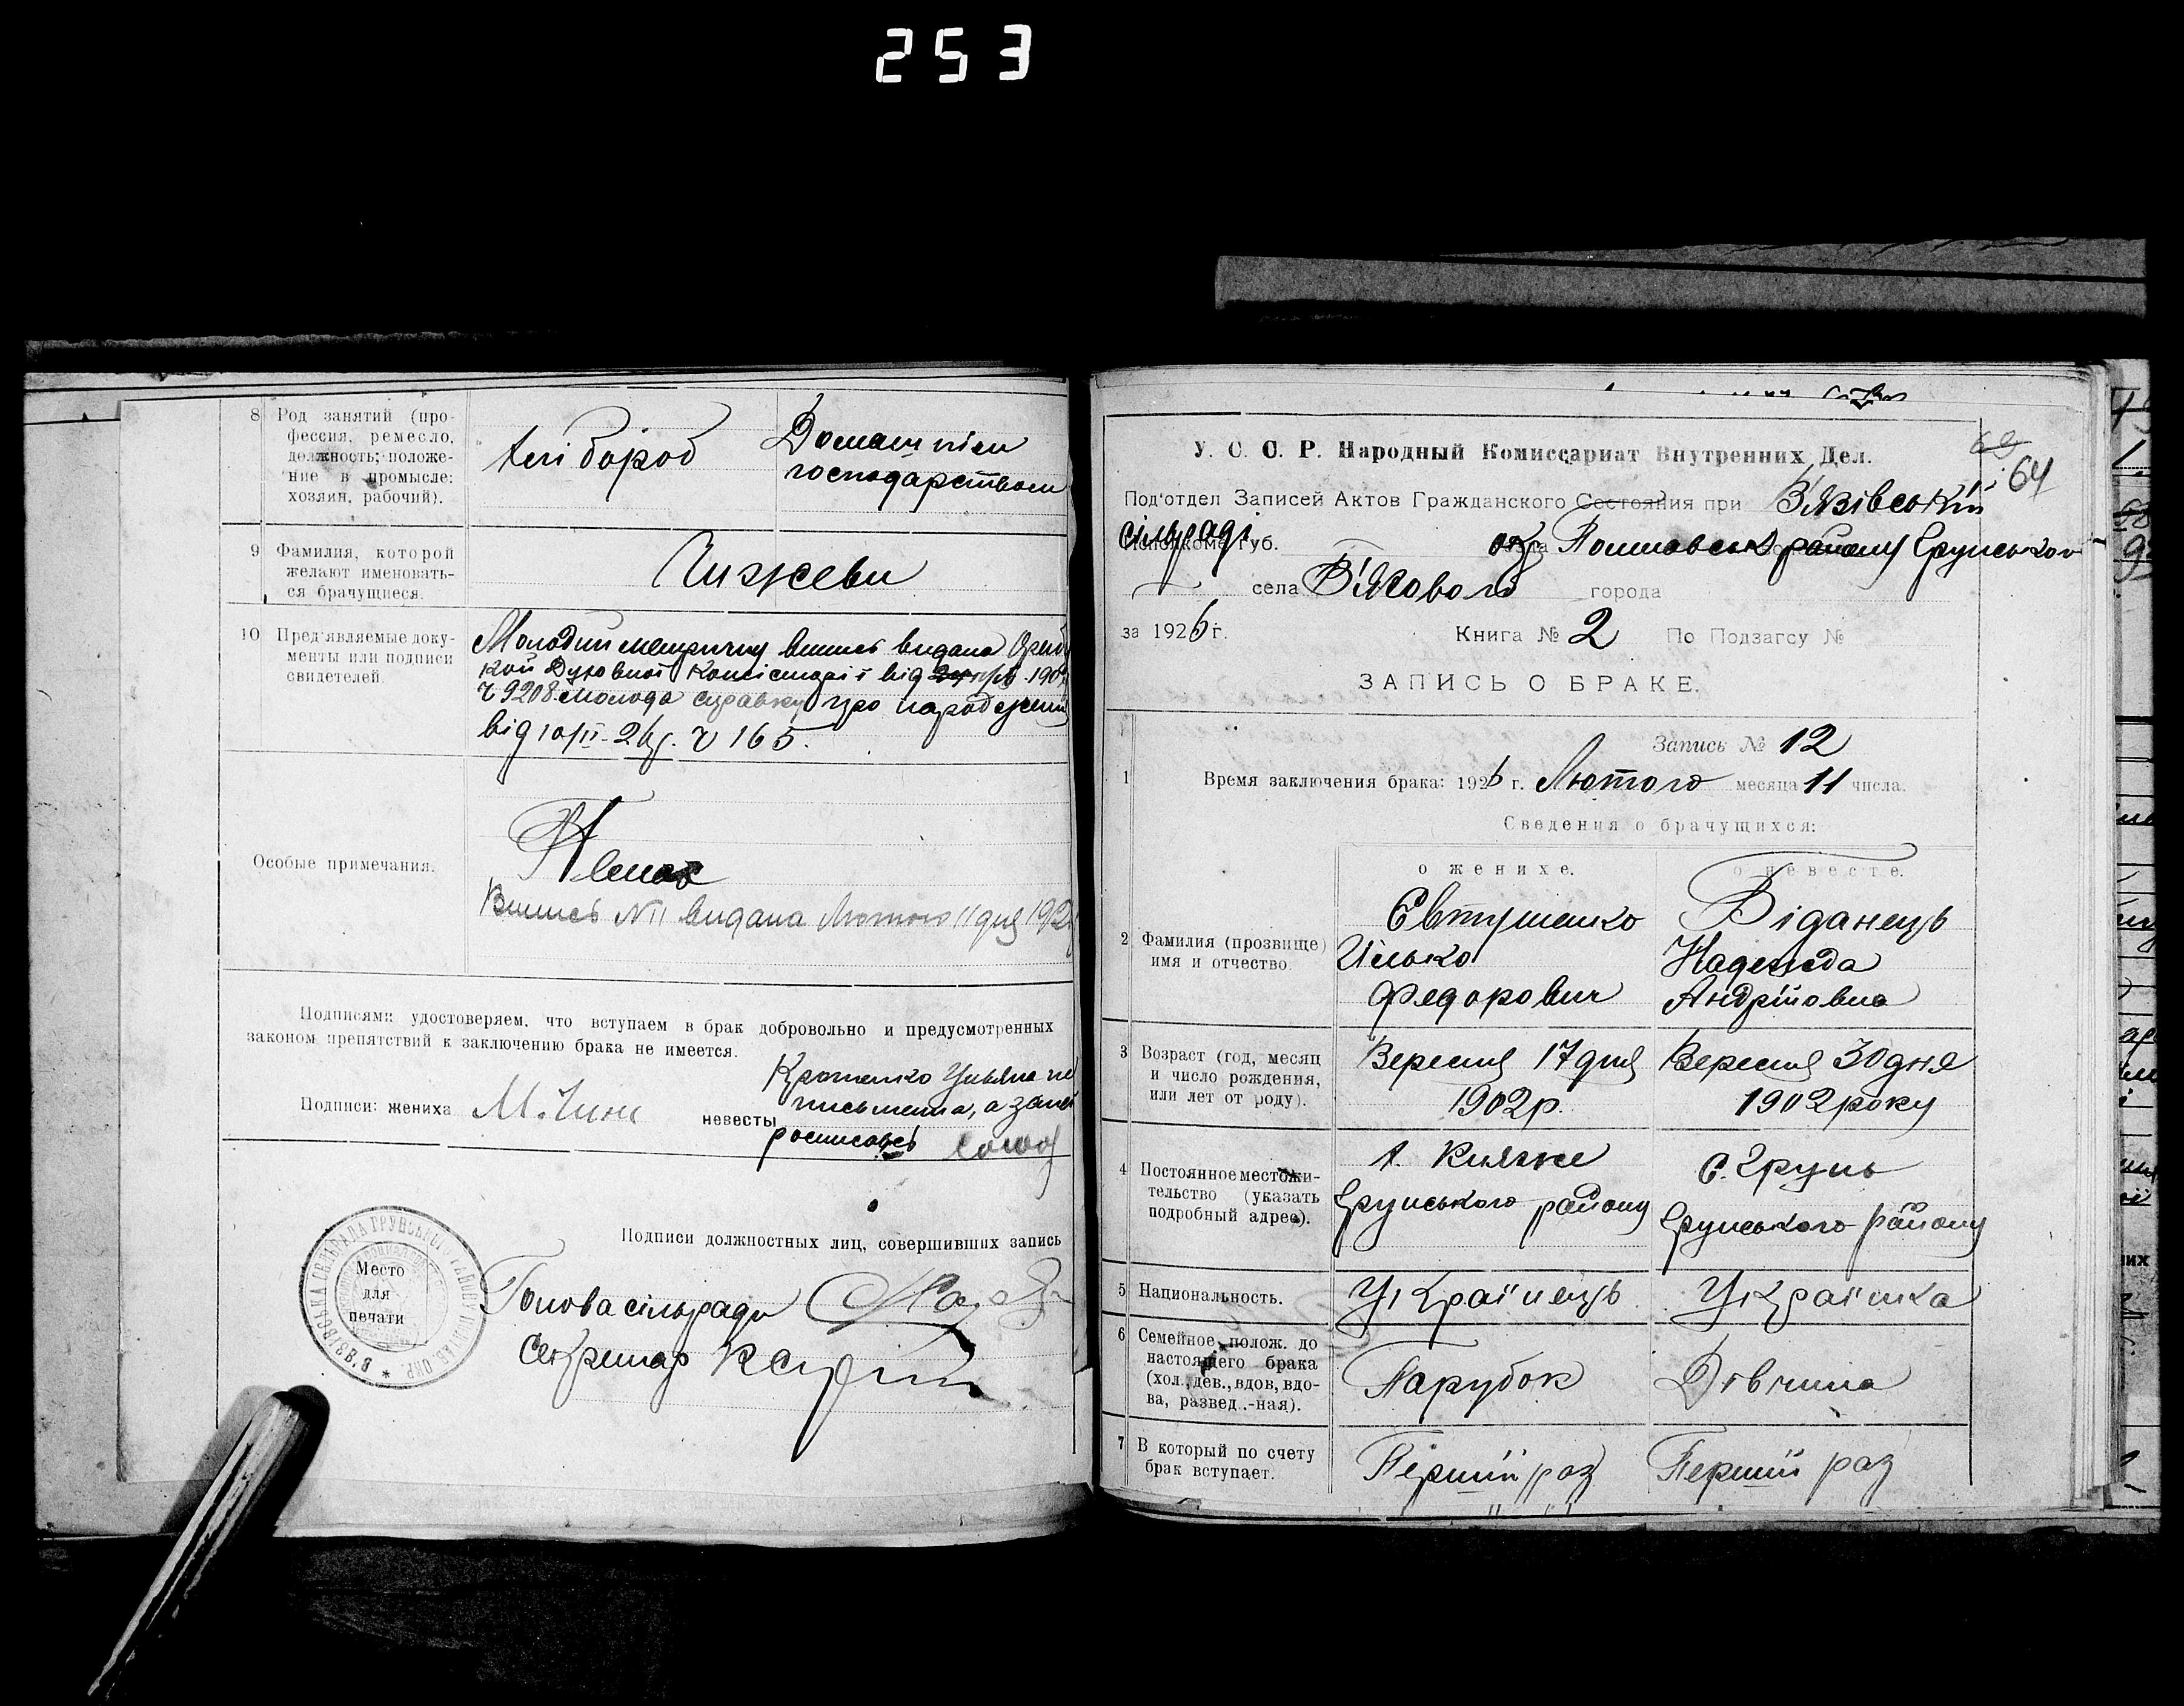 253
8 Род занятий (про-
фессия, ремесло,
должность; положе-
ние в промысле:
хозяин, рабочий).
Хлібороб
Домашнім
господарством
9 Фамилия, которой
желают именовать-
ся брачущиеся.
Чижеви
10 Пред'являемые доку-
менты или подписи
свидетелей.
Молодий метричну випись видана
кой Духовної Консісторії від 190
ч 9208. молода справку про народження
від 10/II-26р. ч 165.
Особые примечания.
Немає
Випись N11 видана Лютого 11 дня 192
Подписями удостоверяем, что вступаем в брак добровольно и предусмотренных
законом препятствий к заключению брака не имеется.
Подписи: жениха М. Чиж
невесты
Уляна не
письмена, а за неї
росписавсь
Подписи должностных лиц, совершивших запись
Место
для
печати
В'ЯЗІВСЬКА СІЛЬРАДА ГРУНСЬКОГО РАЙОНУ ПОЛТАВ. ОКР. *
Голова сільради
Секретар
63
64
У. С. С. Р. Народный Комиссариат Внутренних Дел.
Под'отдел Записей Актов Гражданского Состояния при В'язівській
сільраді Исполкоме Губ. окр Полтавськ району Грунського
села В'язового города
за 1926 г. Книга № 2 По Подзагсу №
ЗАПИСЬ О БРАКЕ.
Запись № 12
1 Время заключения брака: 1926 г. Лютого месяца 11 числа.
Сведения о брачущихся:
о женихе. о невесте.
2 Фамилия (прозвище)
имя и отчество.
Євтушенко
Ілько
Федорович
Віданець
Надежда
Андріївна
3 Возраст (год, месяц
и число рождения,
или лет от роду).
Вересня 17 дня
1902р.
Вересня 30 дня
1902 року
4 Постоянное местожи-
тельство (указать
подробный адрес).
Х. Княже
Грунського району
С. Грунь
Грунського району
5 Национальность.
Українець
Українка
6 Семейное полож. до
настоящего брака
(хол., дев., вдов, вдо-
ва, развед.-ная).
Парубок
Дівчина
7 В который по счету
брак вступает.
Перший раз
Перший раз